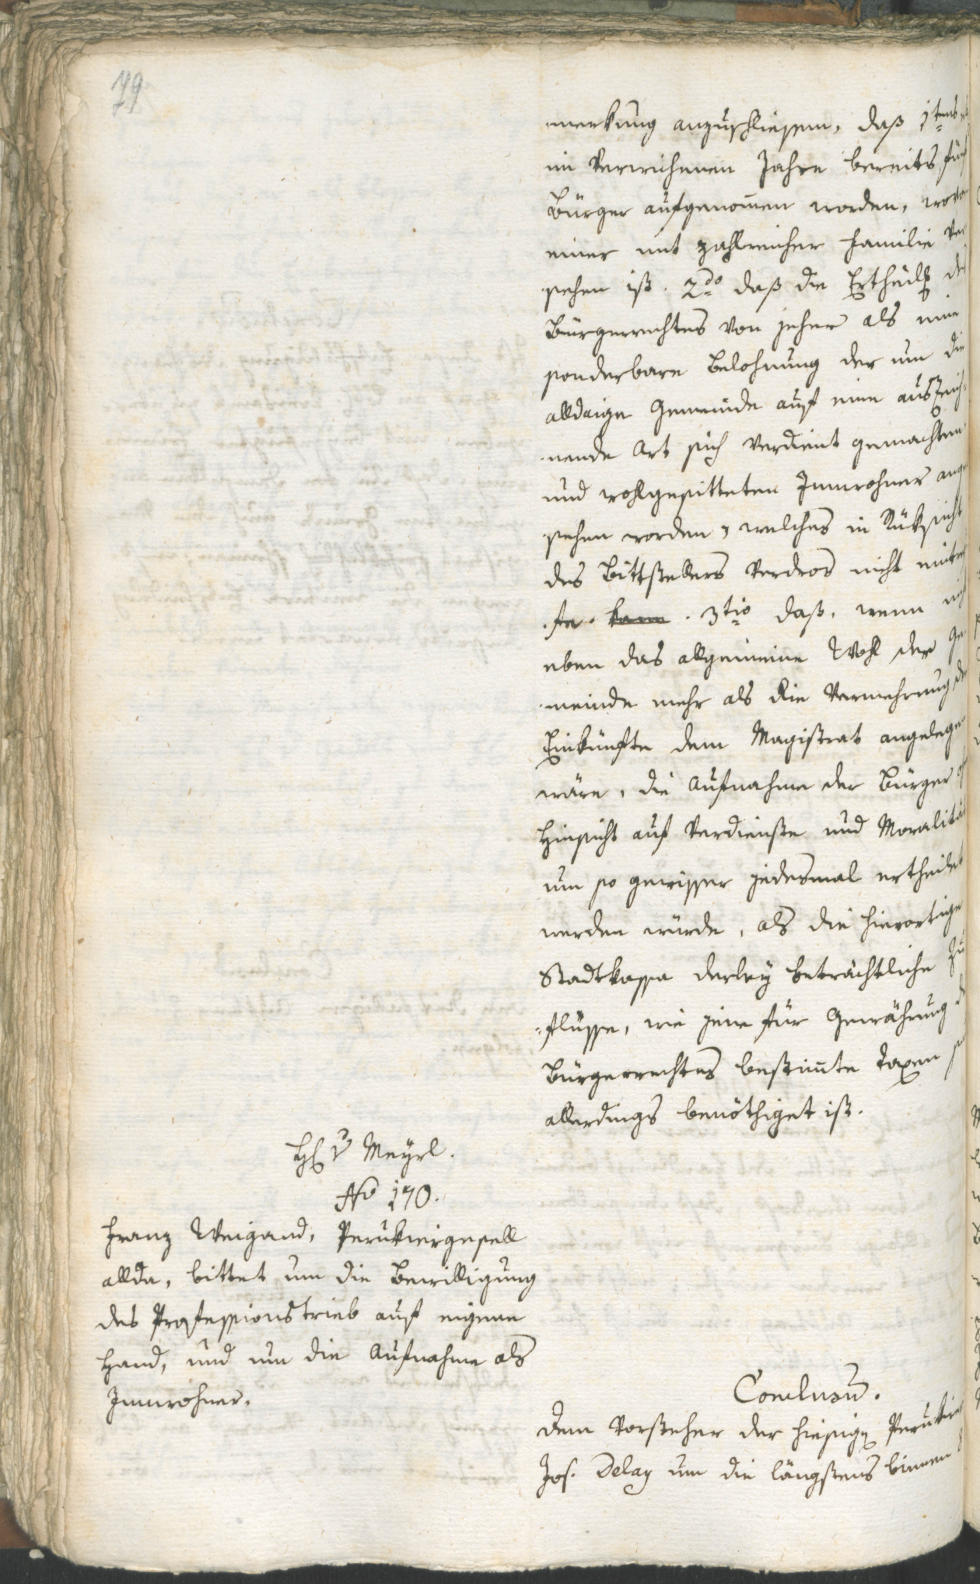 79
merkung anzuschliessen, daß 1tens
im verwichenen Jahre bereits fünf
Bürger aufgenom̄en worden, wovon
einer mit zahlreicher Familie ver
sehen ist. 2do daß die Ertheilg des
Bürgerrechtes von jeher als eine
sonderbare Belohnung der um die
alldaige Gemeinde auf eine auszeich
nende Art sich verdient gemachten
und wohlgesitteten Innwohner ange
sehen worden, welches in Rüksicht
des Bittstellers Verdros nicht eintref
fe. kann. 3tio daß, wenn
eben das allgemeine Wohl der Ge
meinde mehr als die Vermehrung der
Einkünfte dem Magistrat angelegen
wäre, die Aufnahme der Bürger
Hinsicht auf Verdienste und Moralität
um so gewisser jedesmal ertheilet
werden würde, als die hierortige
Stadtkassa derley beträchtliche Zu
flüsse, wie jene für Gewährung
Bürgerrechtes bestim̄te Taxen
allerdings benöthiget ist.
H v Meyrl.
No 170.
Franz Weigand, Perukiergesell
allda, bittet um die Bewilligung
des Professionstrieb auf eigene
Hand, und um die Aufnahme als
Innwohner.
Conclusū.
Dem Vorsteher der hiesigen Perukier
Jos. Delay um die längstens binnen